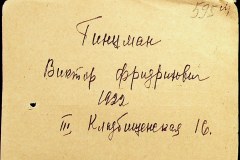 535
Гинцман
Виктор Фридрихович
1922
III Кладбищенская 16.